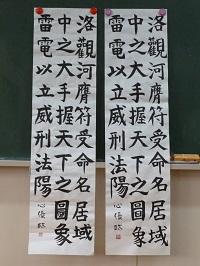 洛觀河膺符受命名居域
中之大手握天下之圖象
雷電以立威刑法陽
洛觀河膺符受命名居域
中之大手握天下之圖象
雷電以立威刑法陽